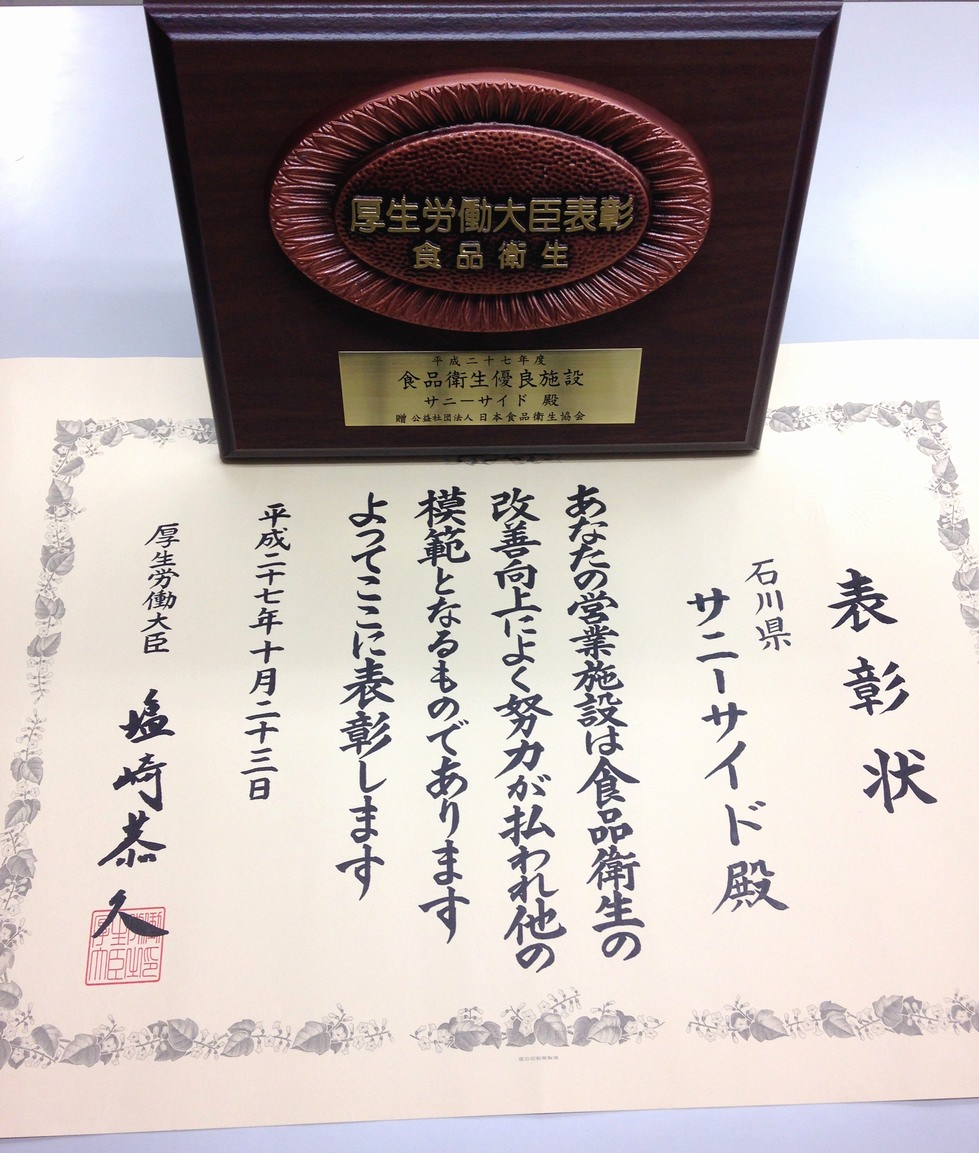 厚生労働大臣表彰
食品衛生
平成二十七年度
食品衛生優良施設
サニーサイド 殿
贈 公益社団法人 日本食品衛生協会
表彰状
石川県
サニーサイド殿
あなたの営業施設は食品衛生の
改善向上によく努力が払われ他の
模範となるものであります
よってここに表彰します
平成二十七年十月二十三日
厚生労働大臣 塩崎恭久